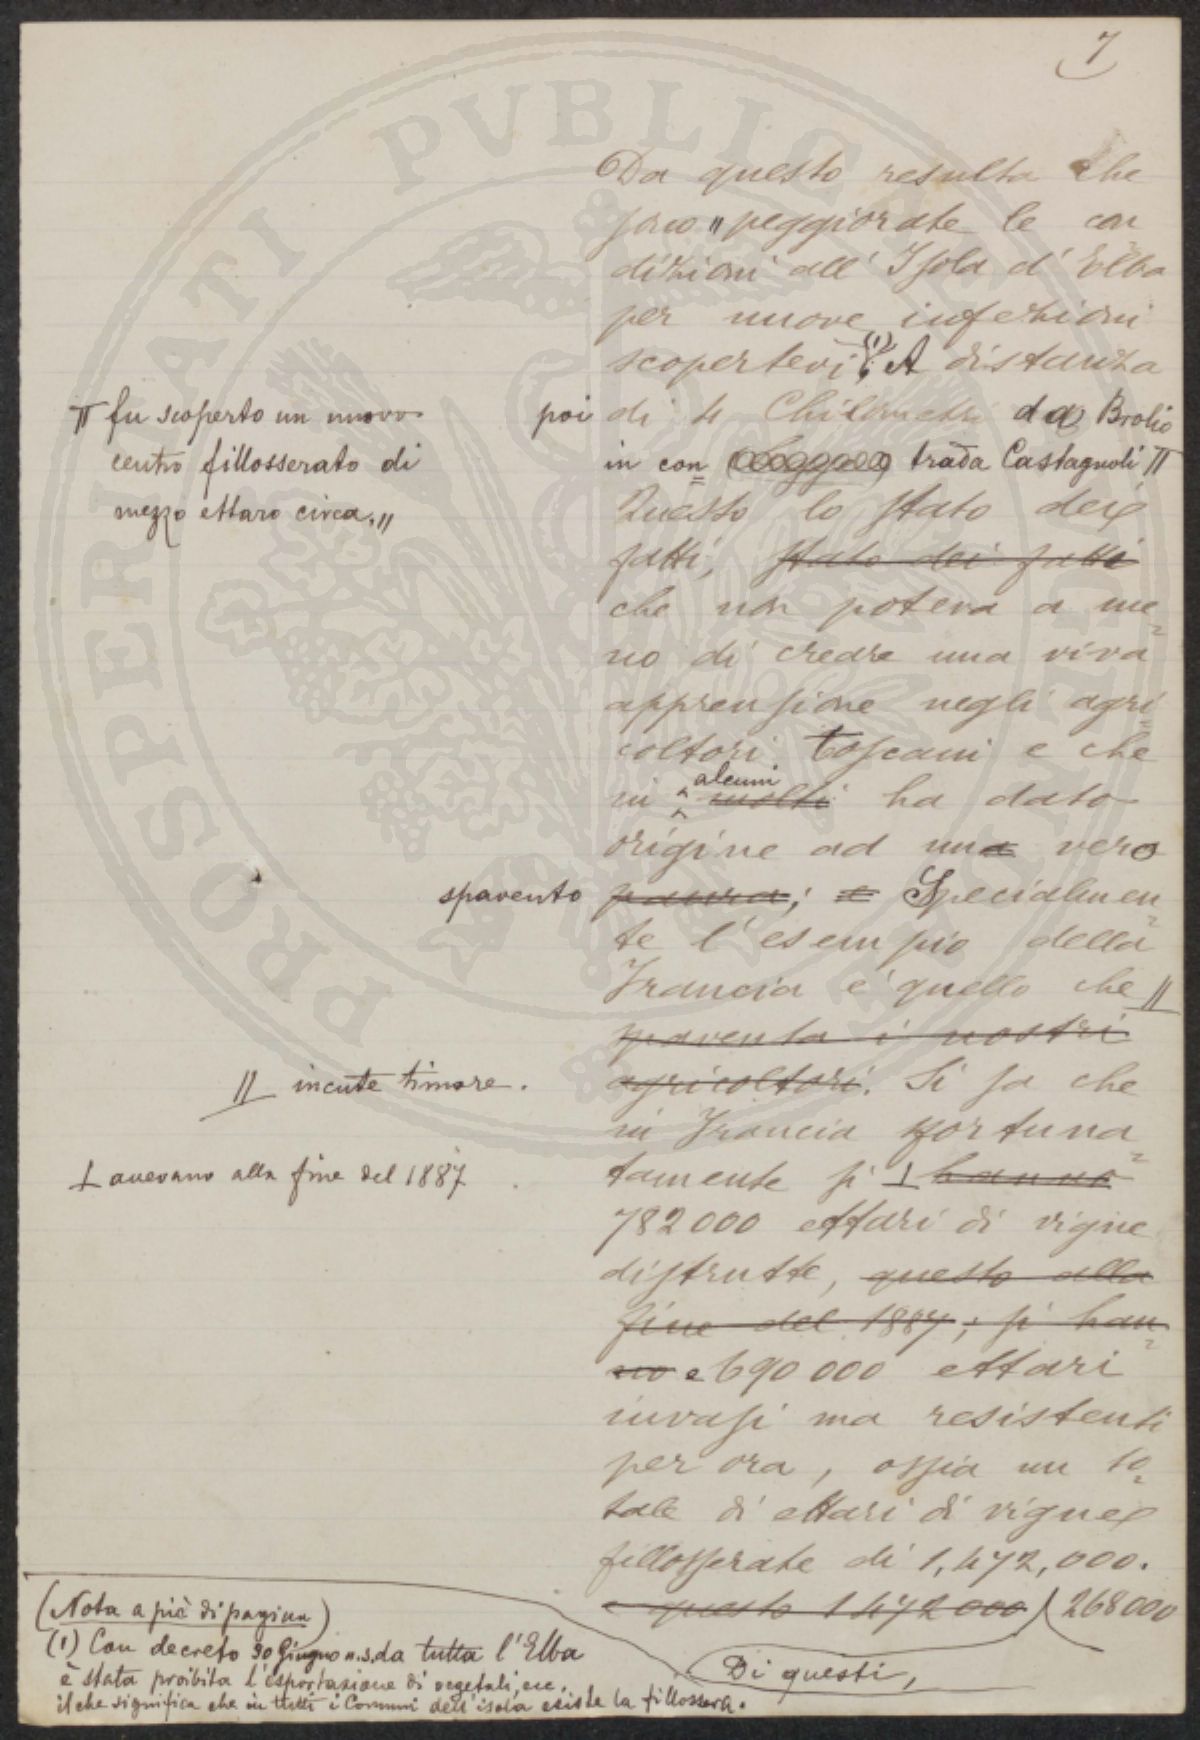 7
Da questo resulta che
sono " peggiorate le con
dizioni all' Isola d' Elba
per nuove infezioni
scopertevi (1); A distanza
poi di 4 Chilometri da Brolio
in con= trada Castagnoli ╥
╥ fu scoperto un nuovo
centro fillosserato di
mezzo ettaro circa. "
Questo lo stato dei
fatti, stato dei fatti
che non poteva a me=
no di creare una viva
apprensione negli agri=
coltori toscani e che
in alcuni molti ha dato
origine ad una vero
spavento paura; e Specialmen=
te l'esempio della
Francia è quello che //
spaventa i nostri
// incute timore.
agricoltori. Si sa che
in Francia sfortuna=
tamente si ⊥ hanno
⊥ avevano alla fine del 1887
782000 ettari di vigne
distrutte, questo alla
fine del 1887; si han=
no e 690000 ettari
invasi ma resistenti
per ora, ossia un to=
tale di ettari di vigne
fillosserate di 1,472,000.
e questo 1472000 268000
Di questi,
(Nota a piè di pagina)
(1) Con decreto 30 Giugno n.s. da tutta l'Elba
è stata proibita l'esportazione di vegetali, ecc.
il che significa che in tutti i Comuni dell'isola esiste la fillossera.
PROSPERITATI PUBLICAE